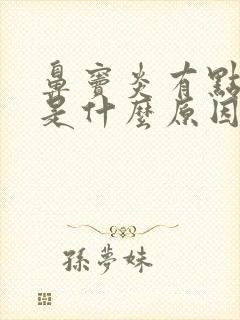 鼻竇炎有點
是什麼原因
孫夢妹